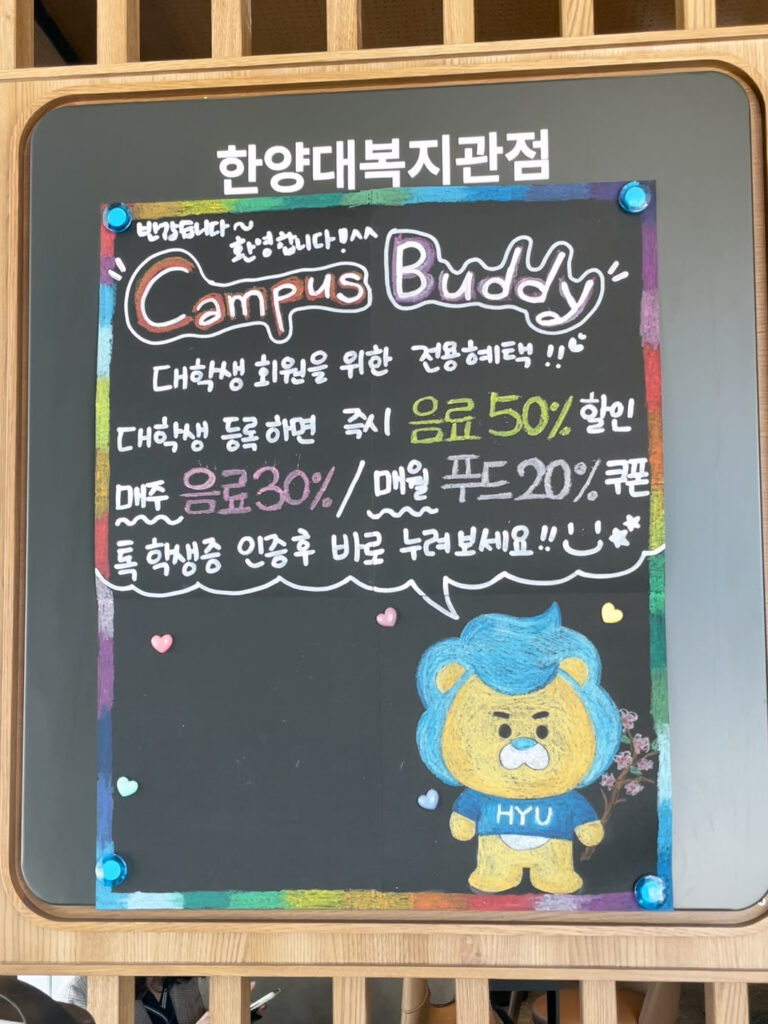 한양대복지관점
반갑습니다~
환영합니다!^^
Campus Buddy
대학생 회원을 위한 전용혜택!!
대학생 등록하면 즉시 음료 50% 할인
매주 음료30% / 매월 푸드20% 쿠폰
톡학생증 인증후 바로 누려보세요!!
HYU